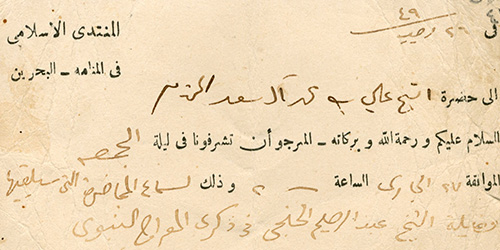 المنتدى الاسلامى
فى المنامه ــ البحرين
فى ٢٦ رجب ٤٩
الى حضرة الشيخ علي بن آل سعد المحترم
السلام عليكم و رحمة الله و بركاته ــ المرجو أن تشرفونا فى ليلة الجمعه
الموافقة ٢٧ الجارى الساعة ٢ و ذلك لسماع المحاضرة التي سيلقيها
فضيلة الشيخ عبد الرحيم الخليجي في ذكرى المعراج النبوى